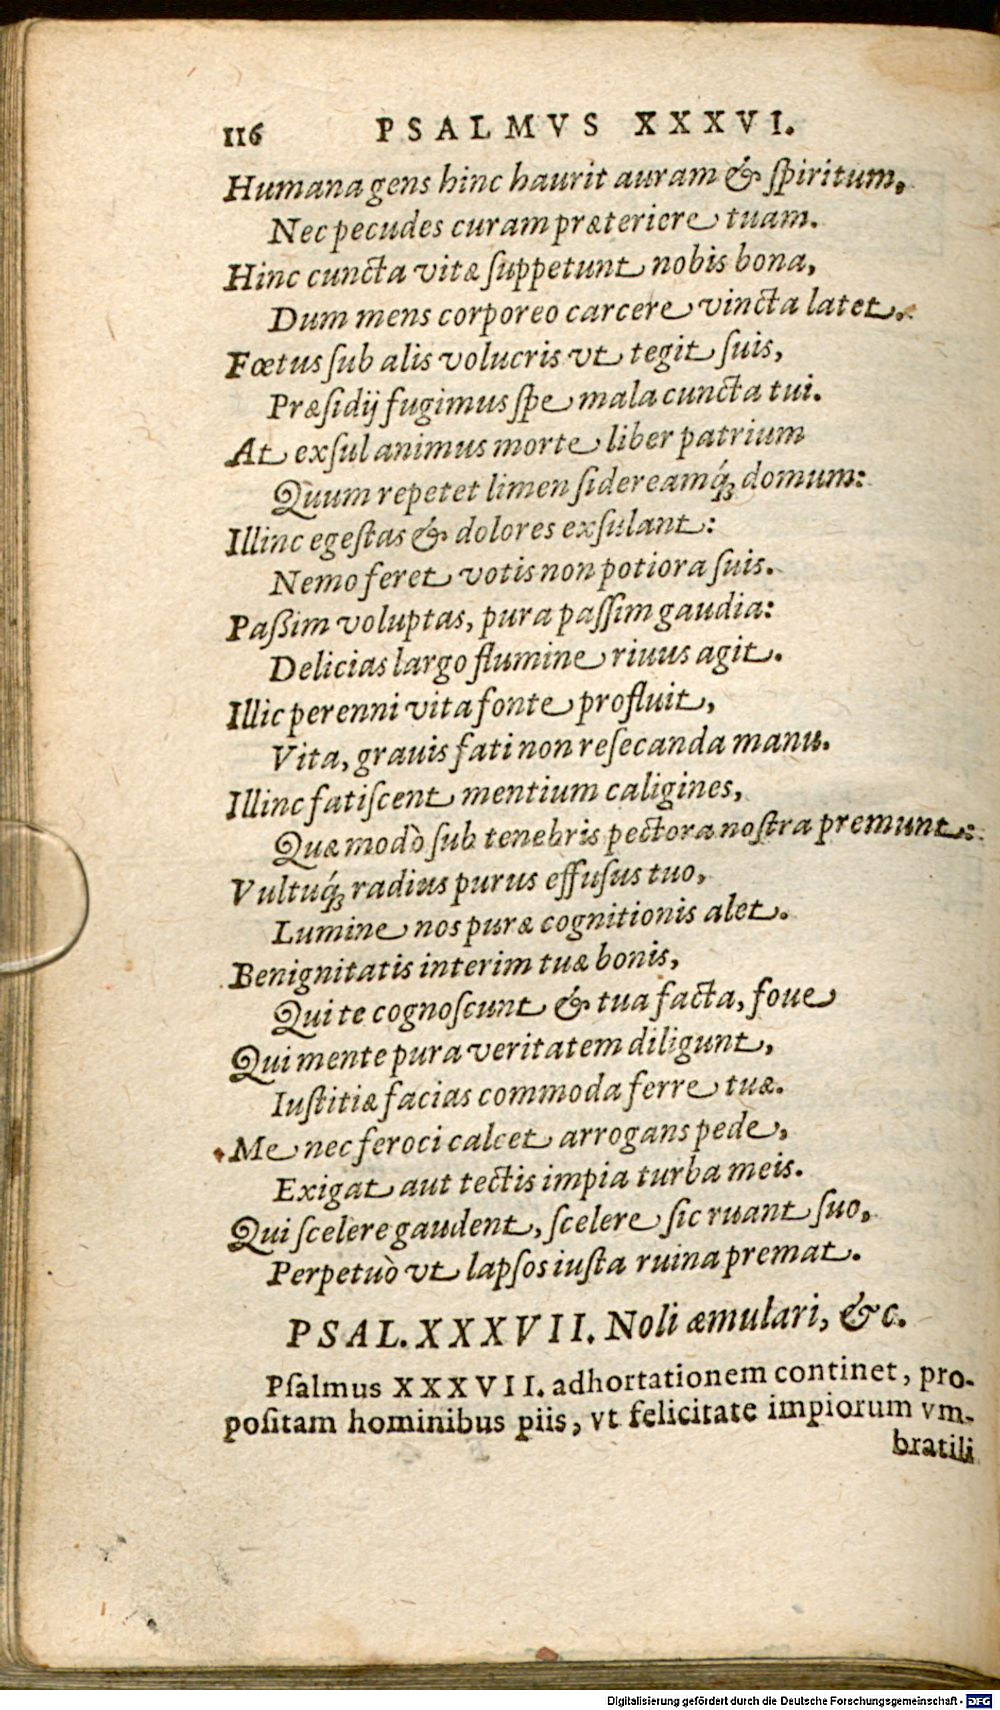 116 PSALMVS XXXVI.
Humana gens hinc haurit auram & ſpiritum,
Nec pecudes curam præteriere tuam.
Hinc cuncta vitæ ſuppetunt nobis bona,
Dum mens corporeo carcere vincta latet.
Fœtus ſub alis volucris vt tegit ſuis,
Præſidij fugimus ſpe mala cuncta tui.
At exſul animus morte liber patrium
Quum repetet limen ſidereamq́; domum:
Illinc egeſtas & dolores exſulant:
Nemo feret votis non potiora ſuis.
Paßim voluptas, pura paſſim gaudia:
Delicias largo flumine riuus agit.
Illic perenni vita fonte profluit,
Vita, grauis fati non reſecanda manu.
Illinc fatiſcent mentium caligines,
Quæ modò ſub tenebris pectora noſtra premunt:
Vultuq́; radius purus effuſus tuo,
Lumine nos puræ cognitionis alet.
Benignitatis interim tuæ bonis,
Qui te cognoſcunt & tua facta, foue
Qui mente pura veritatem diligunt,
Iuſtitiæ facias commoda ferre tuæ.
Me nec feroci calcet arrogans pede,
Exigat aut tectis impia turba meis.
Qui ſcelere gaudent, ſcelere ſic ruant ſuo,
Perpetuò vt lapſos iuſta ruina premat.
PSAL. XXXVII. Noli æmulari, &c.
Pſalmus XXXVII. adhortationem continet, pro-
poſitam hominibus piis, vt felicitate impiorum vm-
bratili
Digitalisierung gefördert durch die Deutsche Forschungsgemeinschaft - DFG